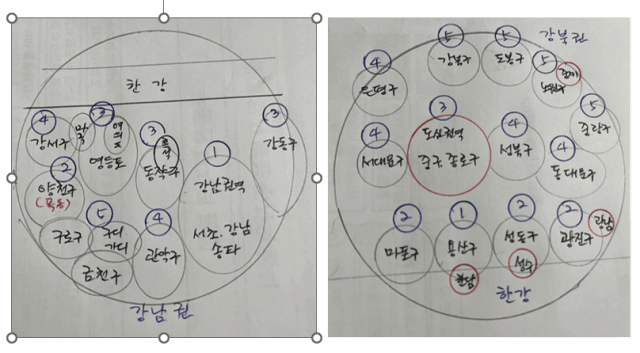 한강
④
강서구
마곡
③
여의도
영등포
③
흑석
동작구
①
강남권역
서초, 강남
송파
③
강동구
②
양천구
(목동)
구로구
⑤
구디
가디
금천구
④
관악구
강남권
강북권
④
은평구
⑤
강북구
⑤
도봉구
⑤
노원구
⑤
중랑구
④
서대문구
③
도심권역
중구, 종로구
④
성북구
④
동대문구
②
마포구
①
용산구
한남
②
성동구
성수
②
광진구
광남
한강